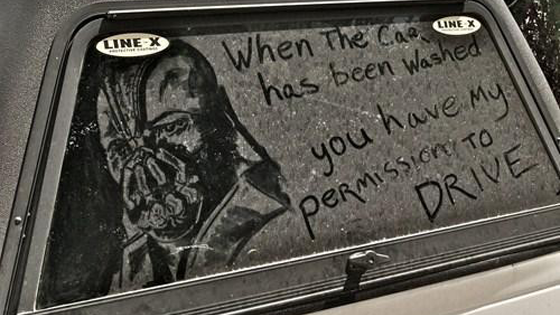 LINE-X
PROTECTIVE COATINGS
LINE-X
PROTECTIVE COATINGS
When The Car
has been washed
you have my
permission to
DRIVE